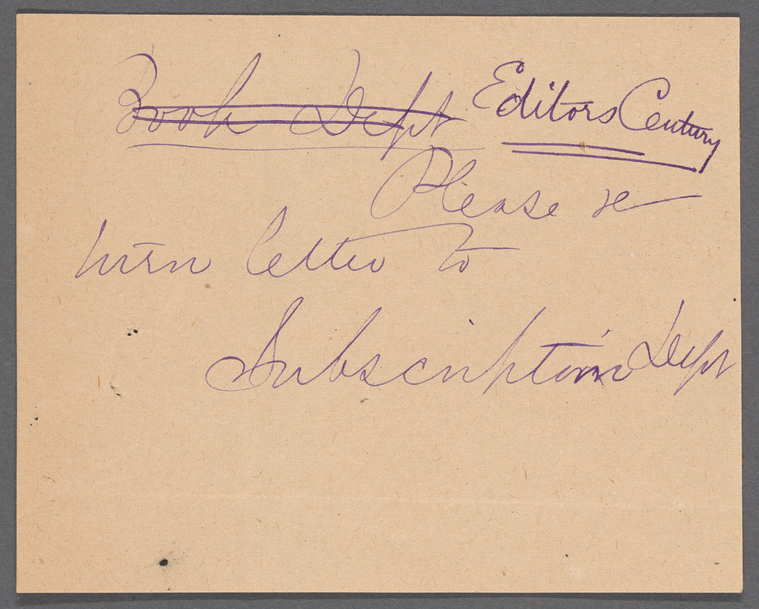 Book Dept Editors Century
Please re
turn letter to
Subscription Dept